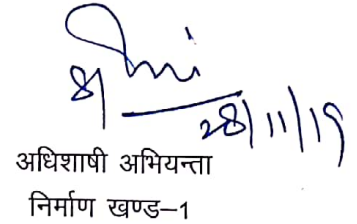 28/11/19
अधिशाषी अभियन्ता
निर्माण खण्ड–1